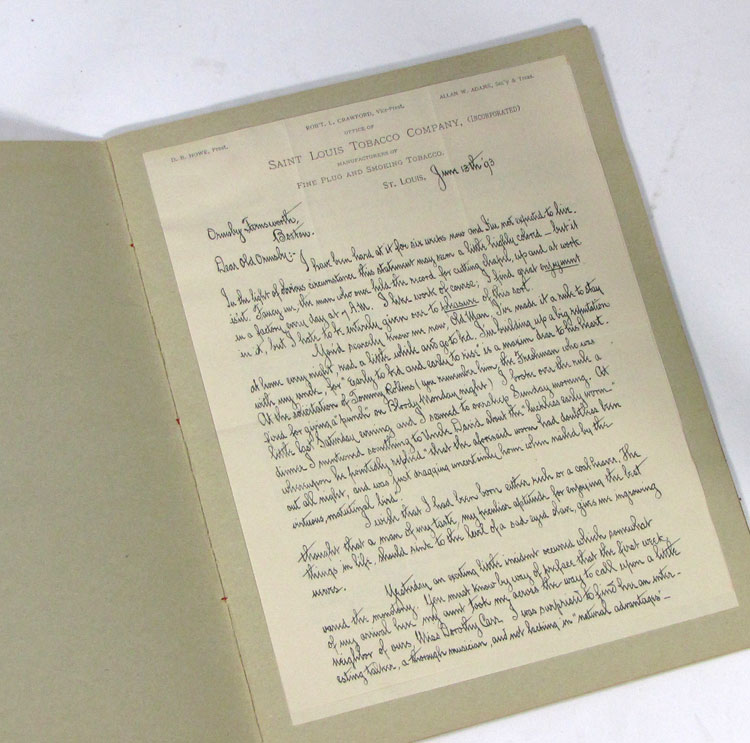 D. R. HOWE, Prest.
ROB'T. L. CRAWFORD, Vice-Prest.
ALLAN W. ADAMS, Sec'y & Treas.
OFFICE OF
SAINT LOUIS TOBACCO COMPANY, (INCORPORATED)
MANUFACTURERS OF
FINE PLUG AND SMOKING TOBACCO.
ST. LOUIS, June 13th '93
Ormsby Farnsworth,
Boston.
Dear Old Ormsby:-
I have been hard at it for six weeks now and I've not expired to live.
In the light of obvious circumstance this statement may seem a little highly colored - but it
isn't. Fancy me, the man who once held the record for cutting chapel, up and at work
in a factory every day at 7 A.M. I hate work of course; I find great enjoyment
in it, but I hate to be entirely given over to pleasure of this sort.
You'd scarcely know me now, Old Man. I've made it a rule to stay
at home every night, read a little while and go to bed. I'm building up a big reputation
with my uncle, for "Early to bed and early to rise" is a maxim dear to his heart.
At the solicitation of Tommy Rollins (you remember him, the Freshman who was
fired for giving a "punch" on Bloody Monday night) I broke over the rule a
little last Saturday evening and I seemed to oversleep Sunday morning. At
dinner I mentioned something to Uncle David about the "luckless early worm"
whereupon he promptly replied "that the aforesaid worm had doubtless been
out all night, and was just dragging uncertainly home when nailed by the
virtuous, matutinal bird."
I wish that I had been born either rich or a coal heaver. The
thought that a man of my taste, my peculiar aptitude for enjoying the best
things in life, should sink to the level of a sad eyed slave, gives me ingrowing
nerves.
Yesterday an exciting little incident occurred which somewhat
varied the monotony. You must know by way of preface that the first week
of my arrival here my aunt took me across the way to call upon a little
neighbor of ours, Miss Dorothy Carr. I was surprised to find her an inter-
esting talker, a thorough musician, and not lacking in "natural advantages" -